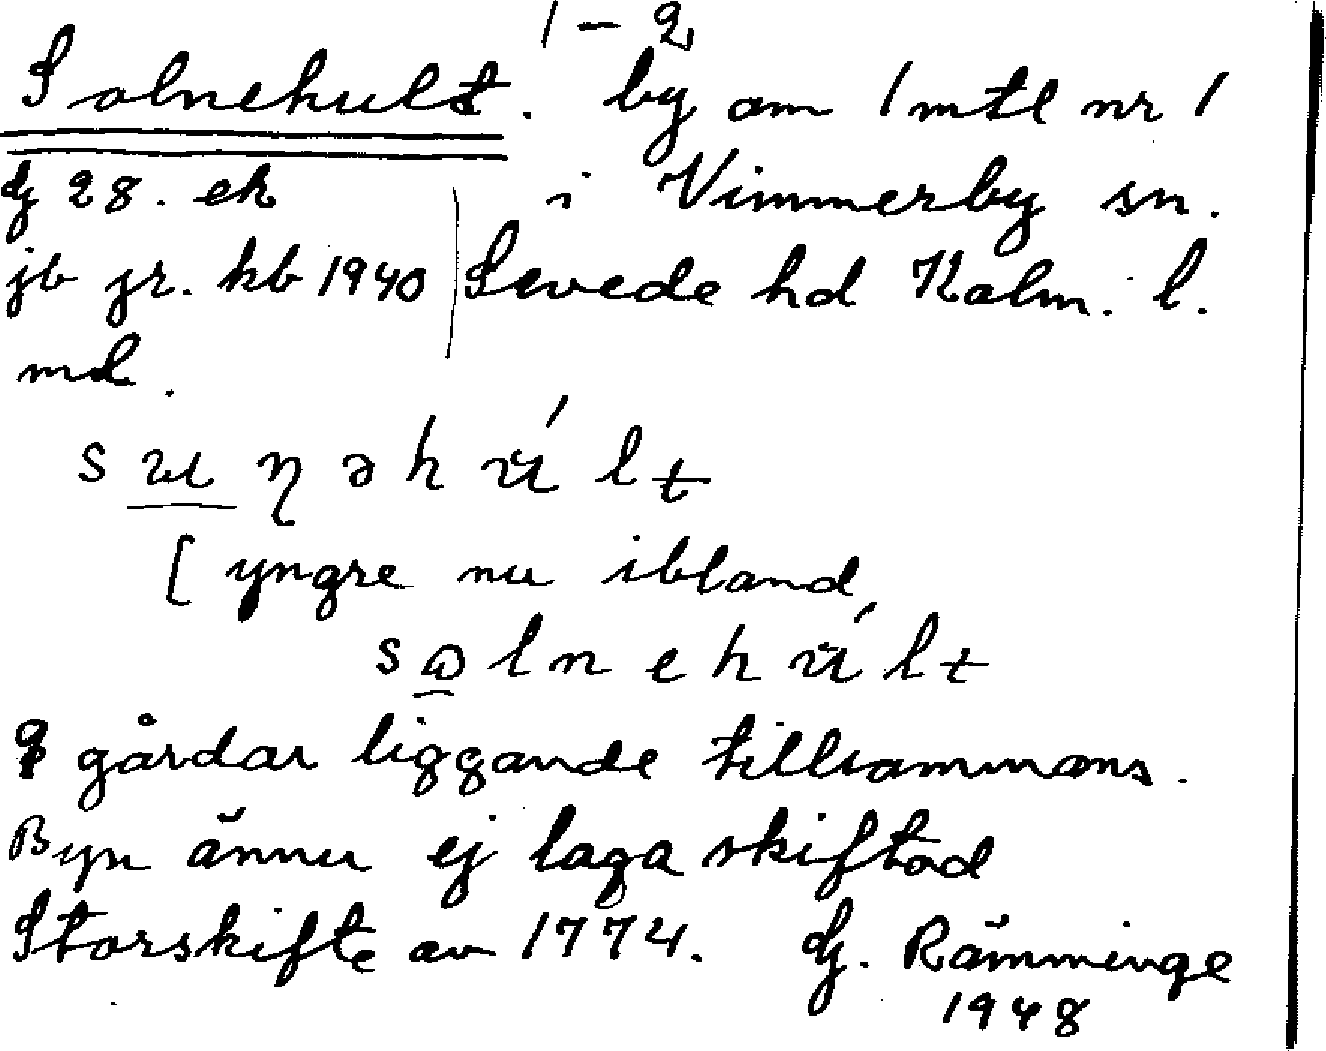 1-2
Solnehult. by om 1 mtl nr 1
dj 28. ek i Vimmerby sn.
jb jr. kb 1940 Sevede hd Kalm. l.
md.
[ yngre nu ibland
solnehúlt
gårdar liggande tillsammans.
Byn ännu ej laga skiftad
Storskifte av 1774. dj. Rämminge
1948